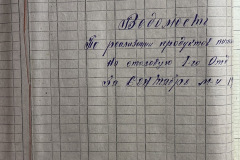 Ведомость
По реализации продуктов
На столовую 1го
За сентябрь м-ц